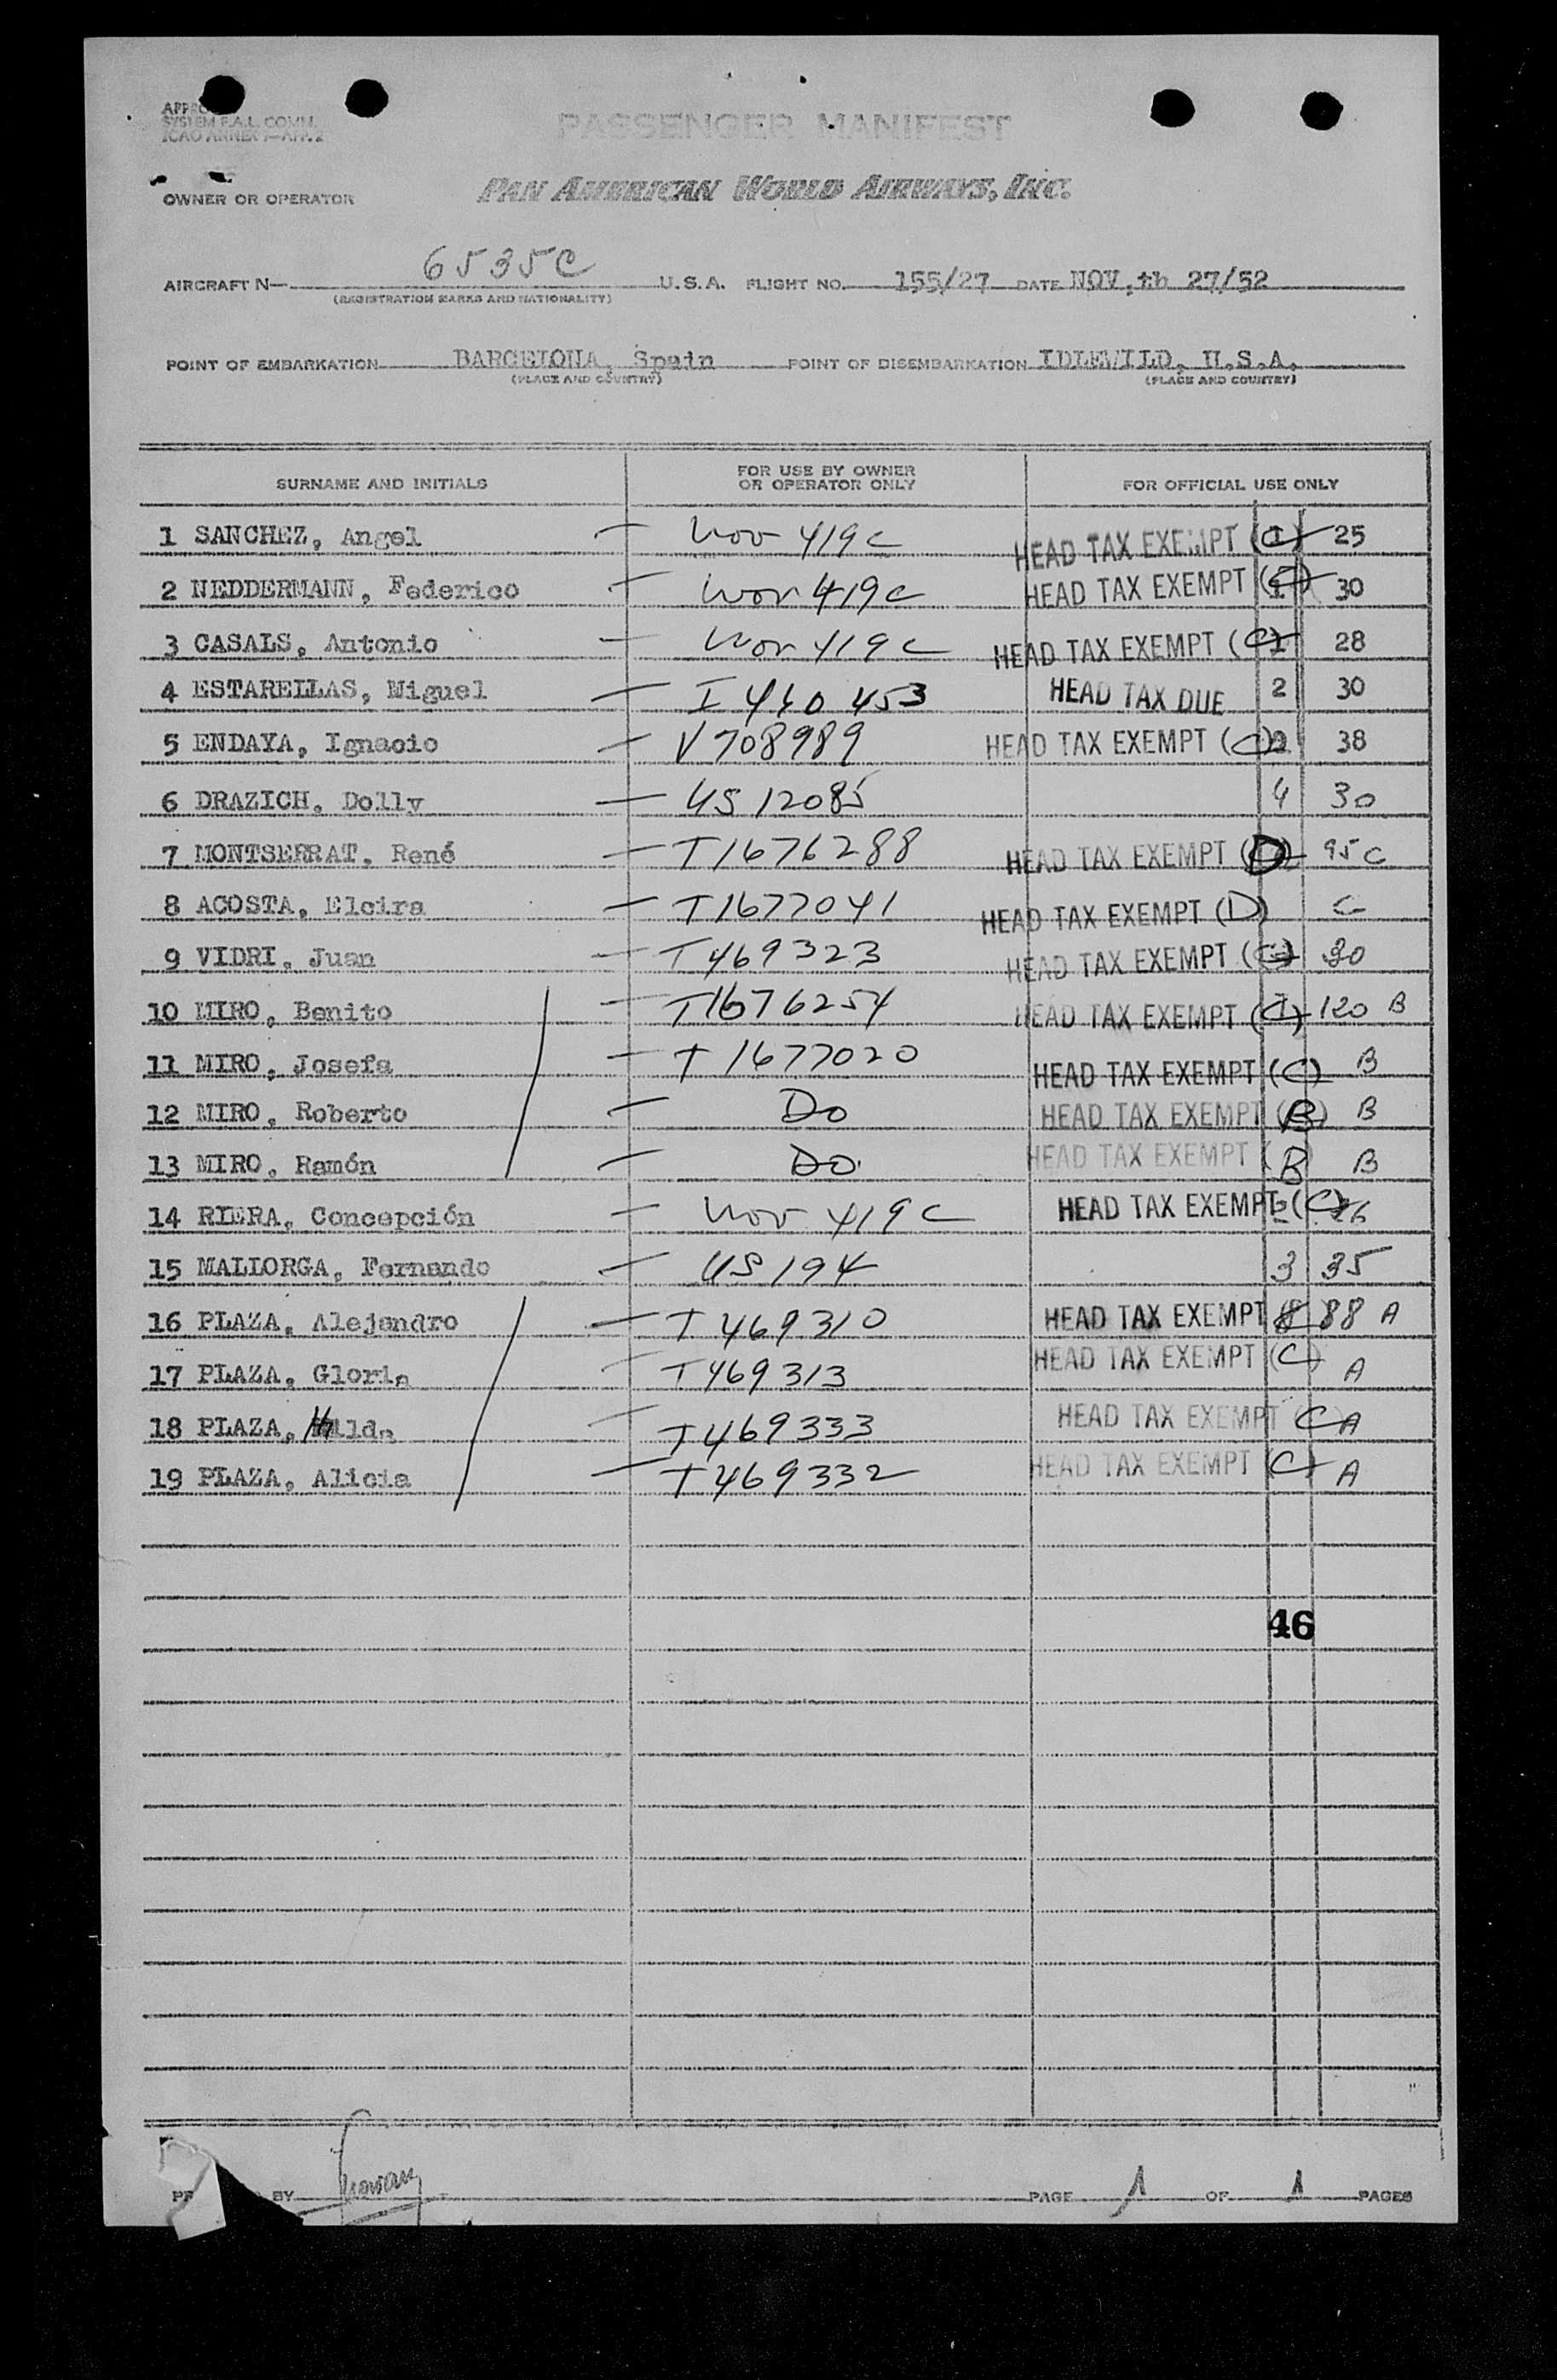 SYSTEM F.A.L. COMM.
ICAO ANNEX 9—APP. 2
PASSENGER MANIFEST
OWNER OR OPERATOR PAN AMERICAN WORLD AIRWAYS, INC.
AIRCRAFT N— 6535C U.S.A. FLIGHT NO. 155/27 DATE NOV, th 27/52
(REGISTRATION MARKS AND NATIONALITY)
POINT OF EMBARKATION BARCELONA, Spain POINT OF DISEMBARKATION IDLEWILD, U.S.A.
(PLACE AND COUNTRY) (PLACE AND COUNTRY)
SURNAME AND INITIALS FOR USE BY OWNER OR OPERATOR ONLY FOR OFFICIAL USE ONLY
1 SANCHEZ, Angel — 419 C HEAD TAX EXEMPT (C) 25
2 NEDDERMANN, Federico — 419 C HEAD TAX EXEMPT (C) 30
3 CASALS, Antonio — 419 C HEAD TAX EXEMPT (C) 28
4 ESTARELLAS, Miguel — I 460 453 HEAD TAX DUE 2 30
5 ENDAYA, Ignacio — V 708989 HEAD TAX EXEMPT (C) 38
6 DRAZICH, Dolly — US 12085 4 30
7 MONTSERRAT, René — T1676288 HEAD TAX EXEMPT (D) 95 C
8 ACOSTA, Elcira — T1677041 HEAD TAX EXEMPT (D) C
9 VIDRI, Juan — T469323 HEAD TAX EXEMPT (C) 30
10 MIRO, Benito — T1676254 HEAD TAX EXEMPT (C) 120 B
11 MIRO, Josefa — T 1677020 HEAD TAX EXEMPT (C) B
12 MIRO, Roberto — Do HEAD TAX EXEMPT (B) B
13 MIRO, Ramón — Do HEAD TAX EXEMPT (B B
14 RIERA, Concepción — 419 C HEAD TAX EXEMPT (C) 26
15 MALLORGA, Fernando — US 194 3 35
16 PLAZA, Alejandro — T 469310 HEAD TAX EXEMPT 88 A
17 PLAZA, Gloria — T469313 HEAD TAX EXEMPT (C) A
18 PLAZA, Hilda — T469333 HEAD TAX EXEMPT C A
19 PLAZA, Alicia — T469332 HEAD TAX EXEMPT (C) A
46
BY PAGE 1 OF 1 PAGES